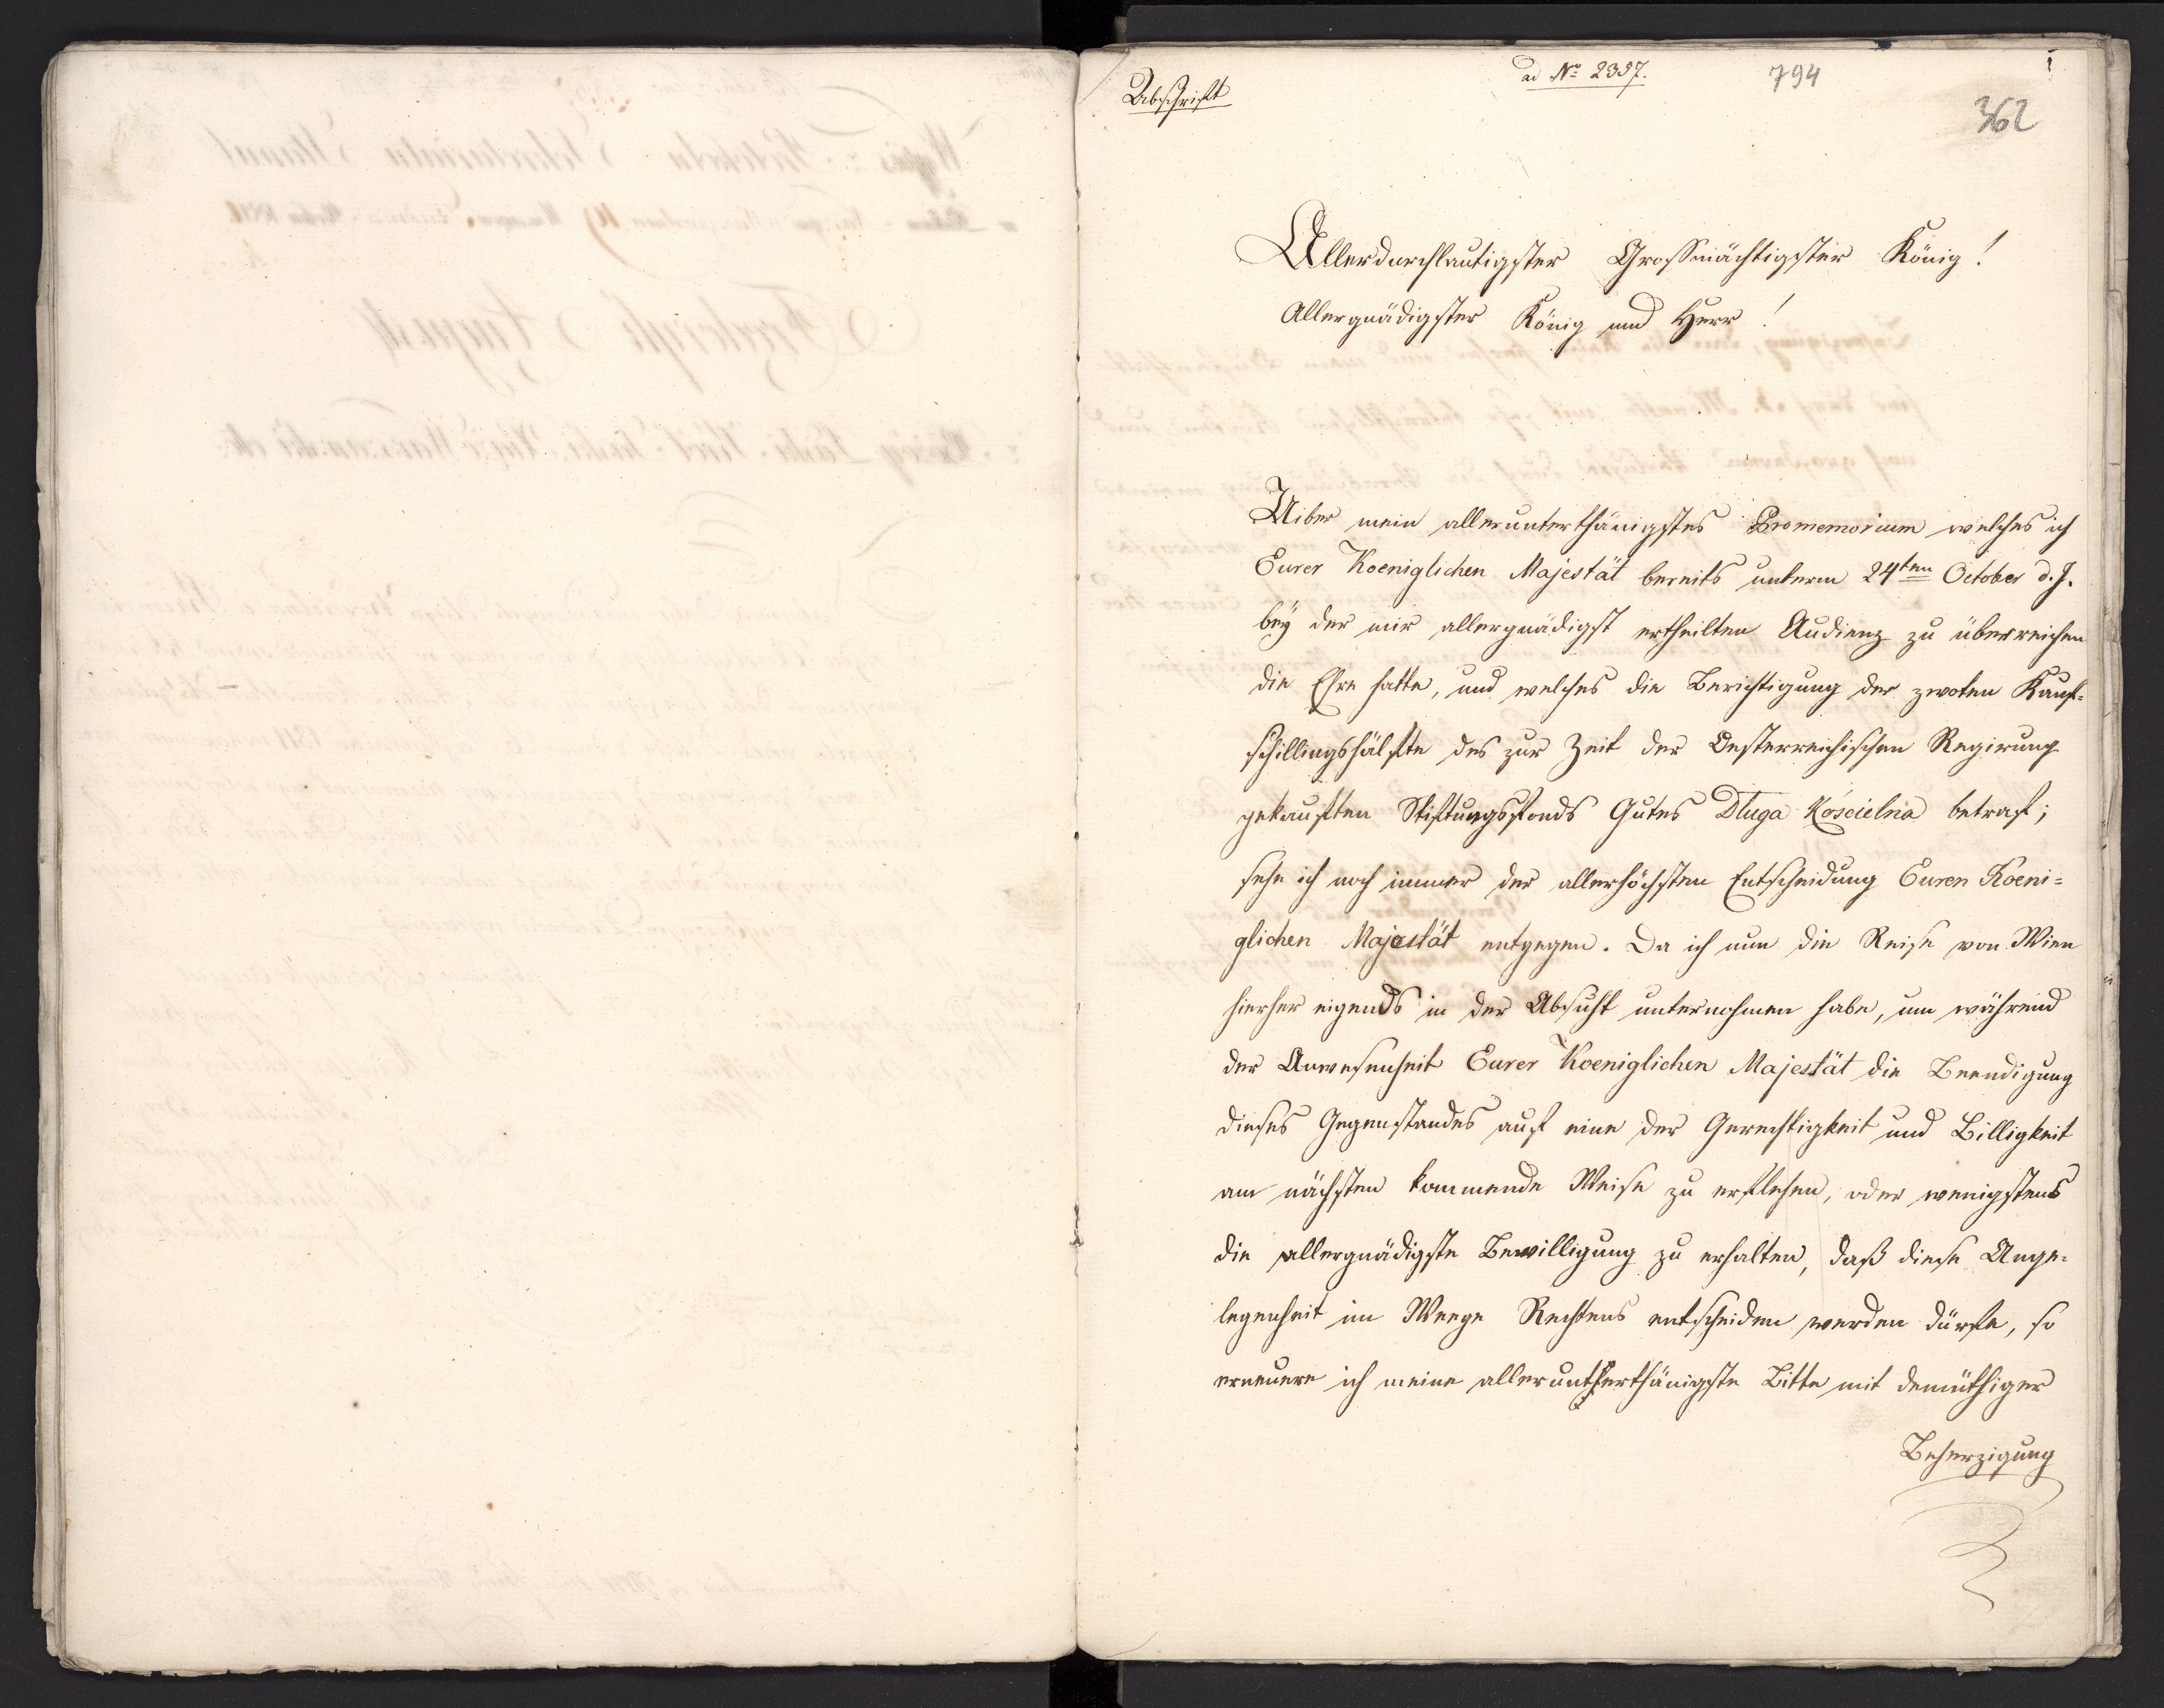 Abschrift
ad No 2357.
794
362
Allerdurchlautigster Grossmächtigster König!
Allergnädigster König und Herr!
Uiber mein allerunterthänigstes Promemorium welches ich
Eurer Koeniglichen Majestät bereits unterm 24ten October d. J.
bey der mir allergnädigst ertheilten Audienz zu überreichen
die Ehre hatte, und welches die Berichtigung der zwoten Kauf=
schillingshälfte des zur Zeit der Oesterreichischen Regirung
gekauften Stiftungsfonds Gutes Dluga Kościelna betraf;
sehe ich noch immer der allerhöchsten Entscheidung Euren Koeni=
glichen Majestät entgegen. Da ich nun die Reise von Wien
hierher eigends in der Absicht unternohmen habe, um während
der Anwesenheit Eurer Koeniglichen Majestät die Beendigung
dieses Gegenstandes auf eine der Gerechtigkeit und Billigkeit
am nächsten kommende Weise zu erflehen, oder wenigstens
die allergnädigste Bewilligung zu erhalten, daß diese Ange-
legenheit im Weege Rechtens entscheiden werden dürfe, so
erneuere ich meine allerunttherthänigste Bitte mit demüthiger
Beherzigung